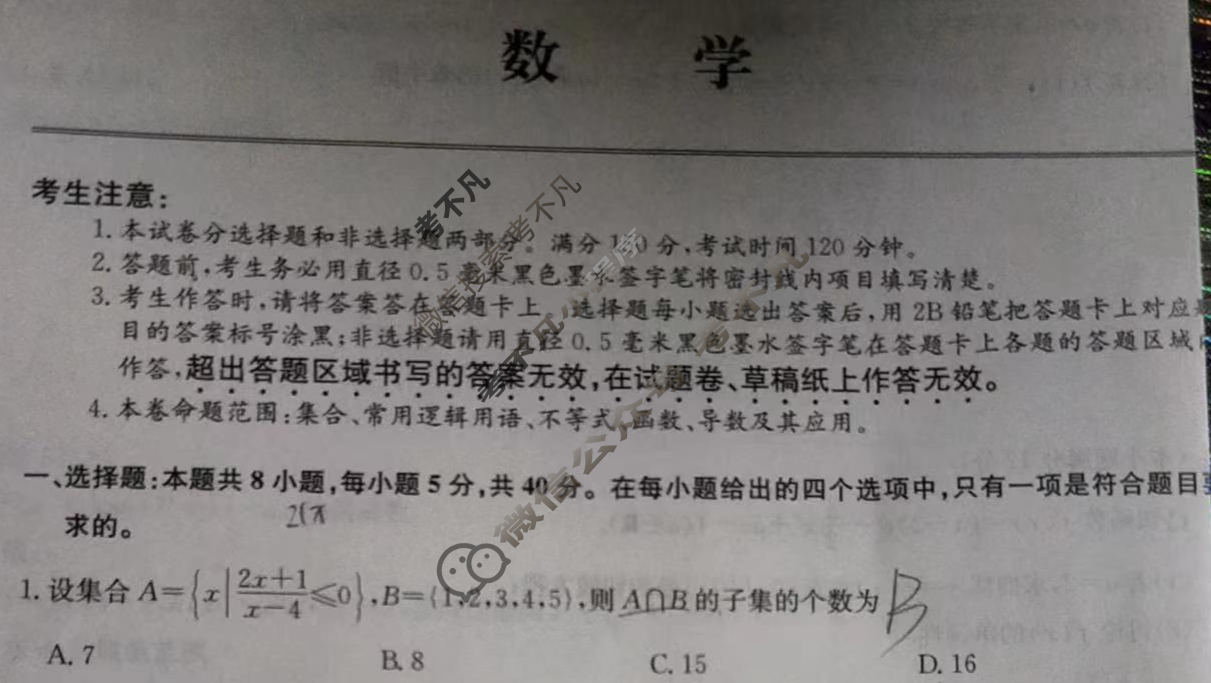 数 学
考生注意:
1. 本试卷分选择题和非选择题两部分。满分150分,考试时间120分钟。
2. 答题前,考生务必用直径0.5毫米黑色墨水签字笔将密封线内项目填写清楚。
3. 考生作答时,请将答案答在答题卡上。选择题每小题选出答案后,用2B铅笔把答题卡上对应题
目的答案标号涂黑;非选择题请用直径0.5毫米黑色墨水签字笔在答题卡上各题的答题区域内
作答,超出答题区域书写的答案无效,在试题卷、草稿纸上作答无效。
4. 本卷命题范围:集合、常用逻辑用语、不等式、函数、导数及其应用。
一、选择题:本题共8小题,每小题5分,共40分。在每小题给出的四个选项中,只有一项是符合题目要
求的。
1. 设集合 A={x|(2x+1)/(x-4)≤0},B={1,2,3,4,5},则 A∩B 的子集的个数为 B
A. 7 B. 8 C. 15 D. 16
考不凡
微信搜索考不凡
微信公众号